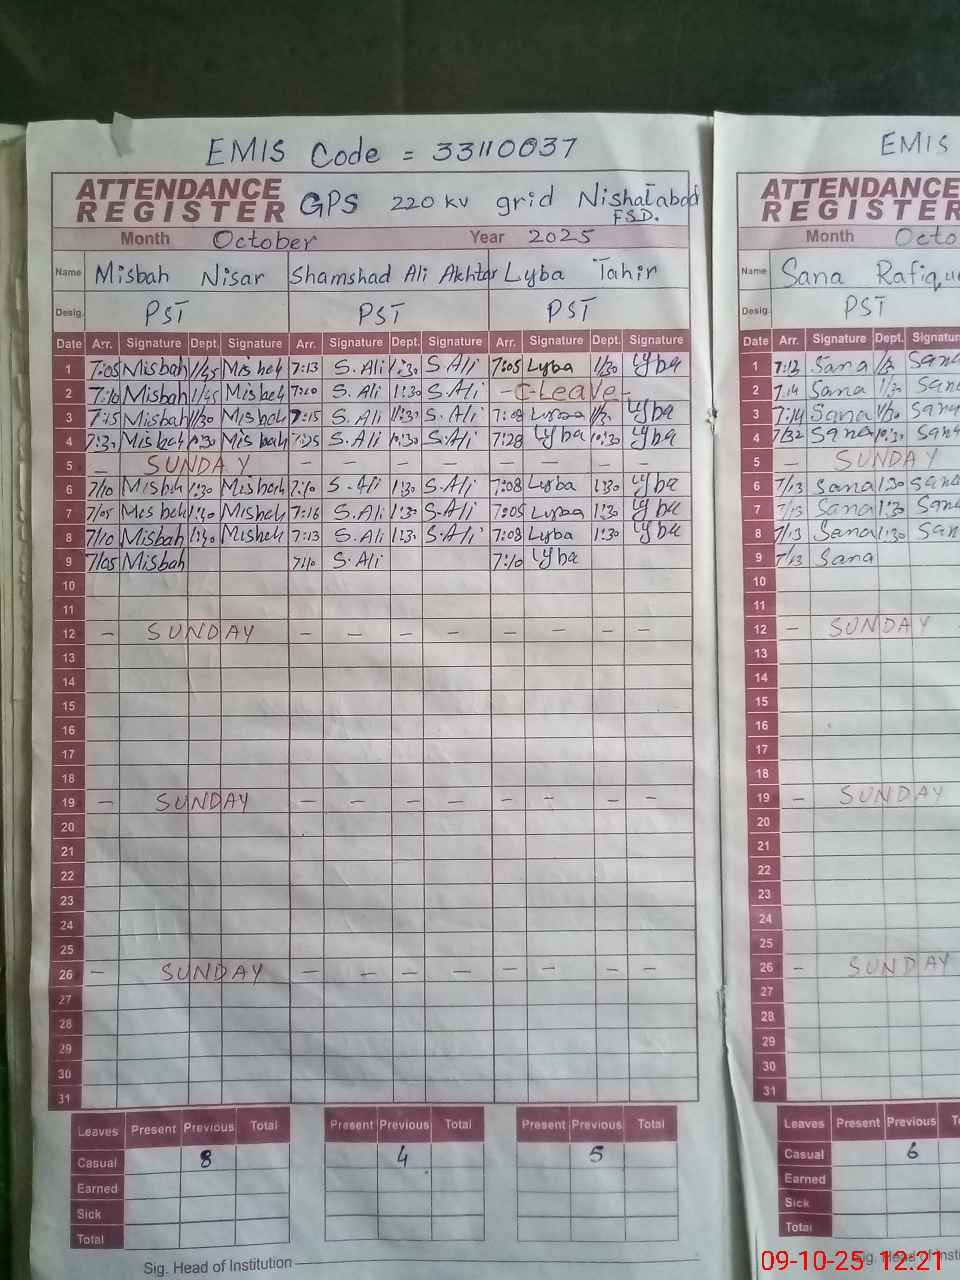 EMIS Code = 33110037
ATTENDANCE REGISTER GPS 220 kv grid Nishatabad FSD.
Month October Year 2025
Name Misbah Nisar Shamshad Ali Akhtar Lyba Tahir
Desig. PST PST PST
Date Arr. Signature Dept. Signature Arr. Signature Dept. Signature Arr. Signature Dept. Signature
1 7:05 Misbah Misbah 7:13 S.Ali 1:30 S.Ali 7:05 Lyba 1/30 Lyba
2 7:10 Misbah Misbah S.Ali 1:30 S.Ali - C-Leave -
3 7:15 Misbah 1/30 Misbah 7:15 S.Ali 1:30 S.Ali Lyba Lyba
4 Misbah 10:30 Misbah 7:25 S.Ali 10:30 S.Ali 7:28 Lyba 10:30 Lyba
5 - SUNDAY - - - - - - - -
6 7/10 Misbah 1:30 Misbah S.Ali 1:30 S.Ali 7:08 Lyba 1:30 Lyba
7 7/05 Misbah Misbah 7:16 S.Ali 1:30 S.Ali 7:05 Lyba 1:30 Lyba
8 7/10 Misbah Misbah 7:13 S.Ali 1:30 S.Ali 7:08 Lyba 1:30 Lyba
9 7/05 Misbah 7:10 S.Ali 7:10 Lyba
10
11
12 - SUNDAY - - - - - - - -
13
14
15
16
17
18
19 - SUNDAY - - - - - - - -
20
21
22
23
24
25
26 - SUNDAY - - - - - - - -
27
28
29
30
31
Leaves Present Previous Total Present Previous Total Present Previous Total
Casual 8 4 5
Earned
Sick
Total
Sig. Head of Institution
EMIS
ATTENDANCE
REGISTER
Month
Name Sana
Desig. PST
Date Arr. Signature Dept. Signature
1 7:12 Sana Sana
2 7:14 Sana Sana
3 7:14 Sana Sana
4 7/32 Sana 10:30
5 - SUNDAY
6 7/13 Sana 1:30 Sana
7 7/13 Sana 1:30 Sana
8 7/13 Sana 1:30
9 7/13 Sana
10
11
12 - SUNDAY -
13
14
15
16
17
18
19 - SUNDAY
20
21
22
23
24
25
26 - SUNDAY
27
28
29
30
31
Leaves Present Previous
Casual 6
Earned
Sick
Total
Sig. Head of
09-10-25 12:21